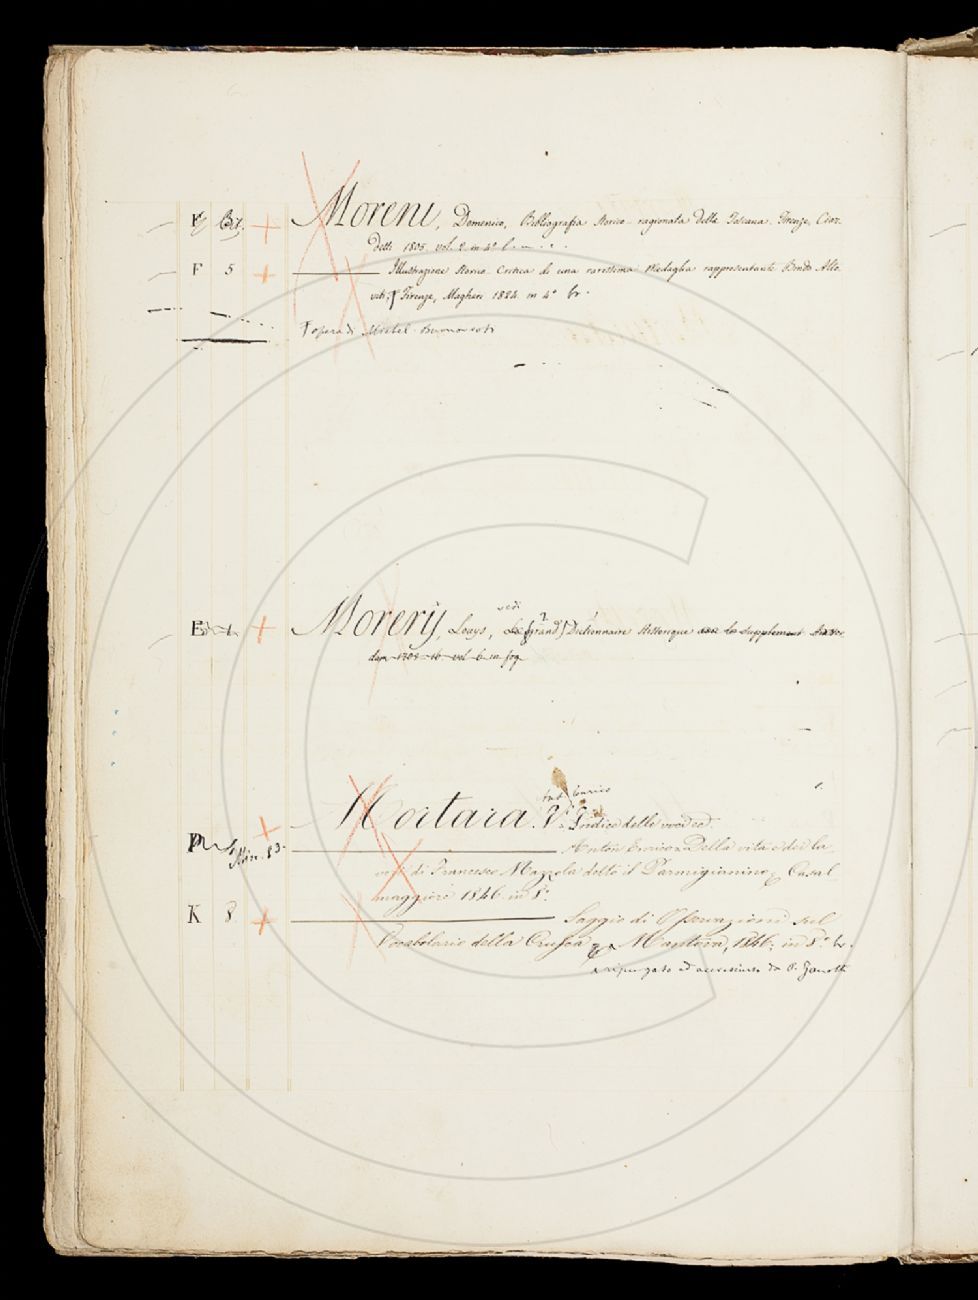 F 37. Moreni, Domenico, Bibliografia storico-ragionata della Toscana. Firenze, Ciar
detti 1805. vol. 2 in 4°
F 5 Illustrazione storico-critica di una rarissima Medaglia rappresentante Bindo Alto
viti, † Firenze, Magheri 1824. in 4° br.
† opera di Michel. Buonaroti
vedi
E 1 Morerÿ, Louys, Le Grand Dictionnaire Historique avec le supplement Amster
dam 1702-16 vol. 6 in fog.
Ant. Enrico
Mortara. V. Indice delle
P Min. 83. Anton Enrico Della vita e dei la
vori di Francesco Mazzola detto il Parmigianino, Casal
maggiore 1846 in 8°.
K 8. Saggio di Osservazioni sul
Vocabolario della Crusca Mantova, 1846, in 8.° br.
ripurgato ed accresciuto da P. Zanotti